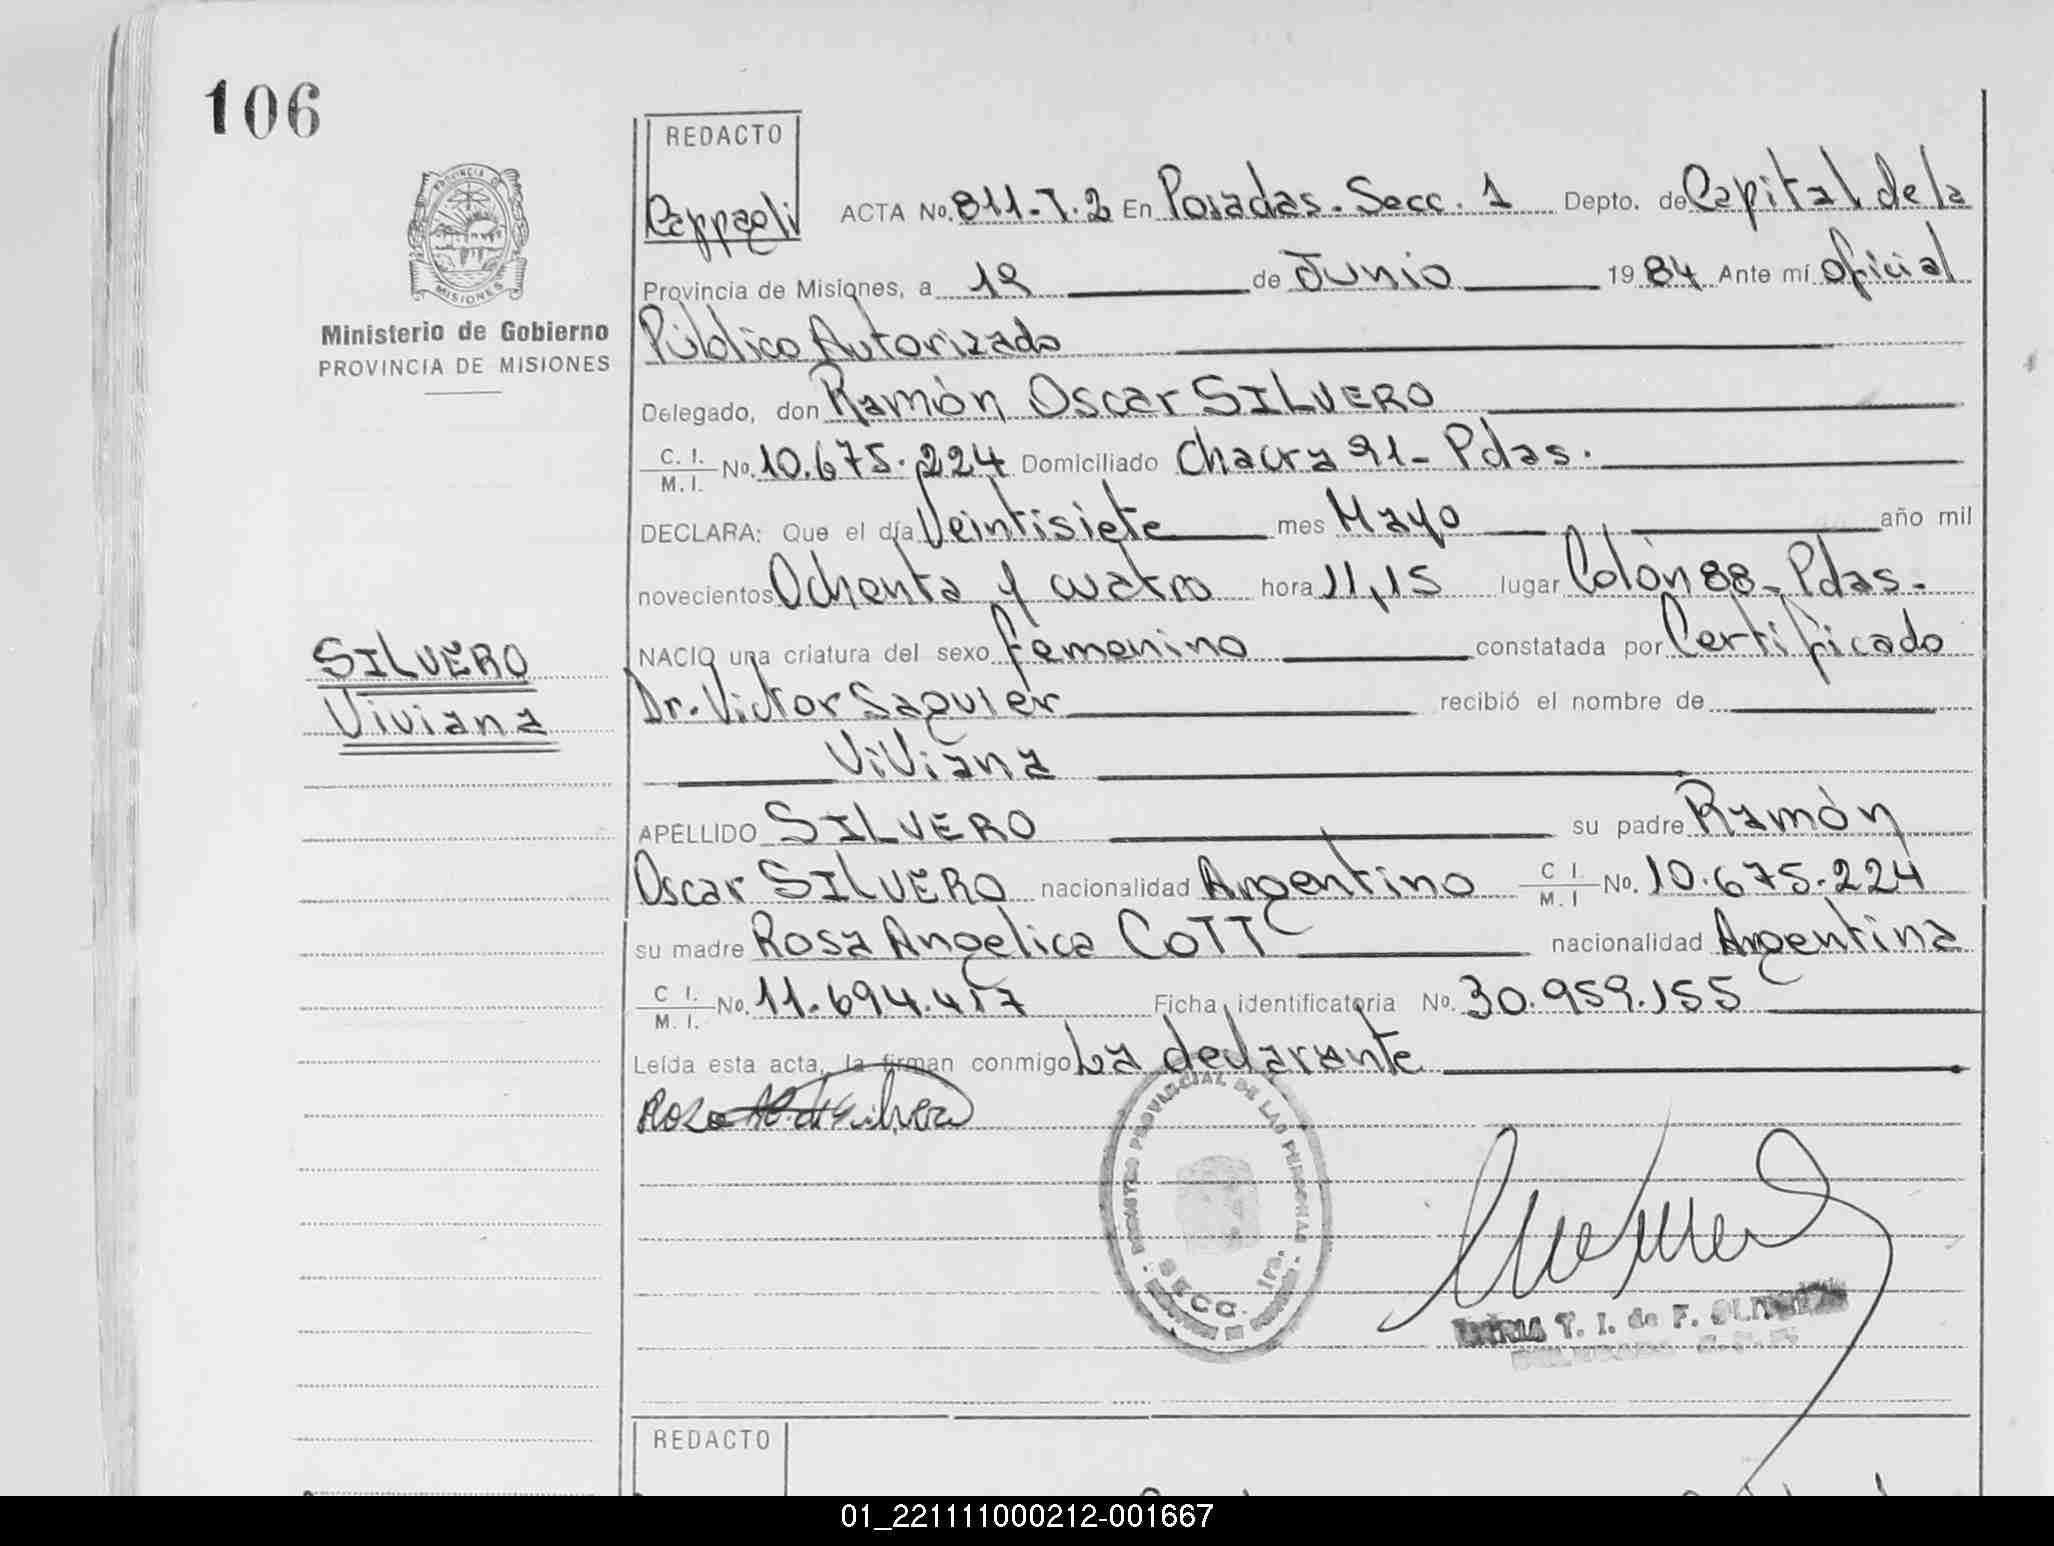 106
REDACTO
Cappagli
ACTA No. 811-T.2 En Posadas. Secc. 1 Depto. de Capital de la
Provincia de Misiones, a 12 de Junio 1984 Ante mí Oficial
Público Autorizado
Delegado, don Ramón Oscar SILVERO
C. I. M. I. No. 10.675.224 Domiciliado Chacra 91- Pdas.
DECLARA: Que el día Veintisiete mes Mayo año mil
novecientos Ochenta y cuatro hora 11,15 lugar Colón 88- Pdas.-
NACIO una criatura del sexo femenino constatada por Certificado
Dr. Victor Saguier recibió el nombre de
Viviana
APELLIDO SILVERO su padre Ramón
Oscar SILVERO nacionalidad Argentino C I. M. I No. 10.675.224
su madre Rosa Angelica COTT nacionalidad Argentina
C I. M. I. No. 11.694.417 Ficha identificatoria No. 30.959.155
Leída esta acta, la firman conmigo La declarante
PROVINCIA DE MISIONES
Ministerio de Gobierno
PROVINCIA DE MISIONES
SILVERO
Viviana
REGISTRO PROVINCIAL DE LAS PERSONAS
SECC. 1ra.
T. I. de F.
REDACTO
01_221111000212-001667